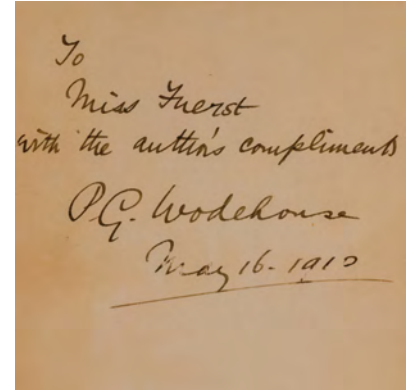 To
Miss Fuerst
with the author's compliments
P.G. Wodehouse
May 16. 1910